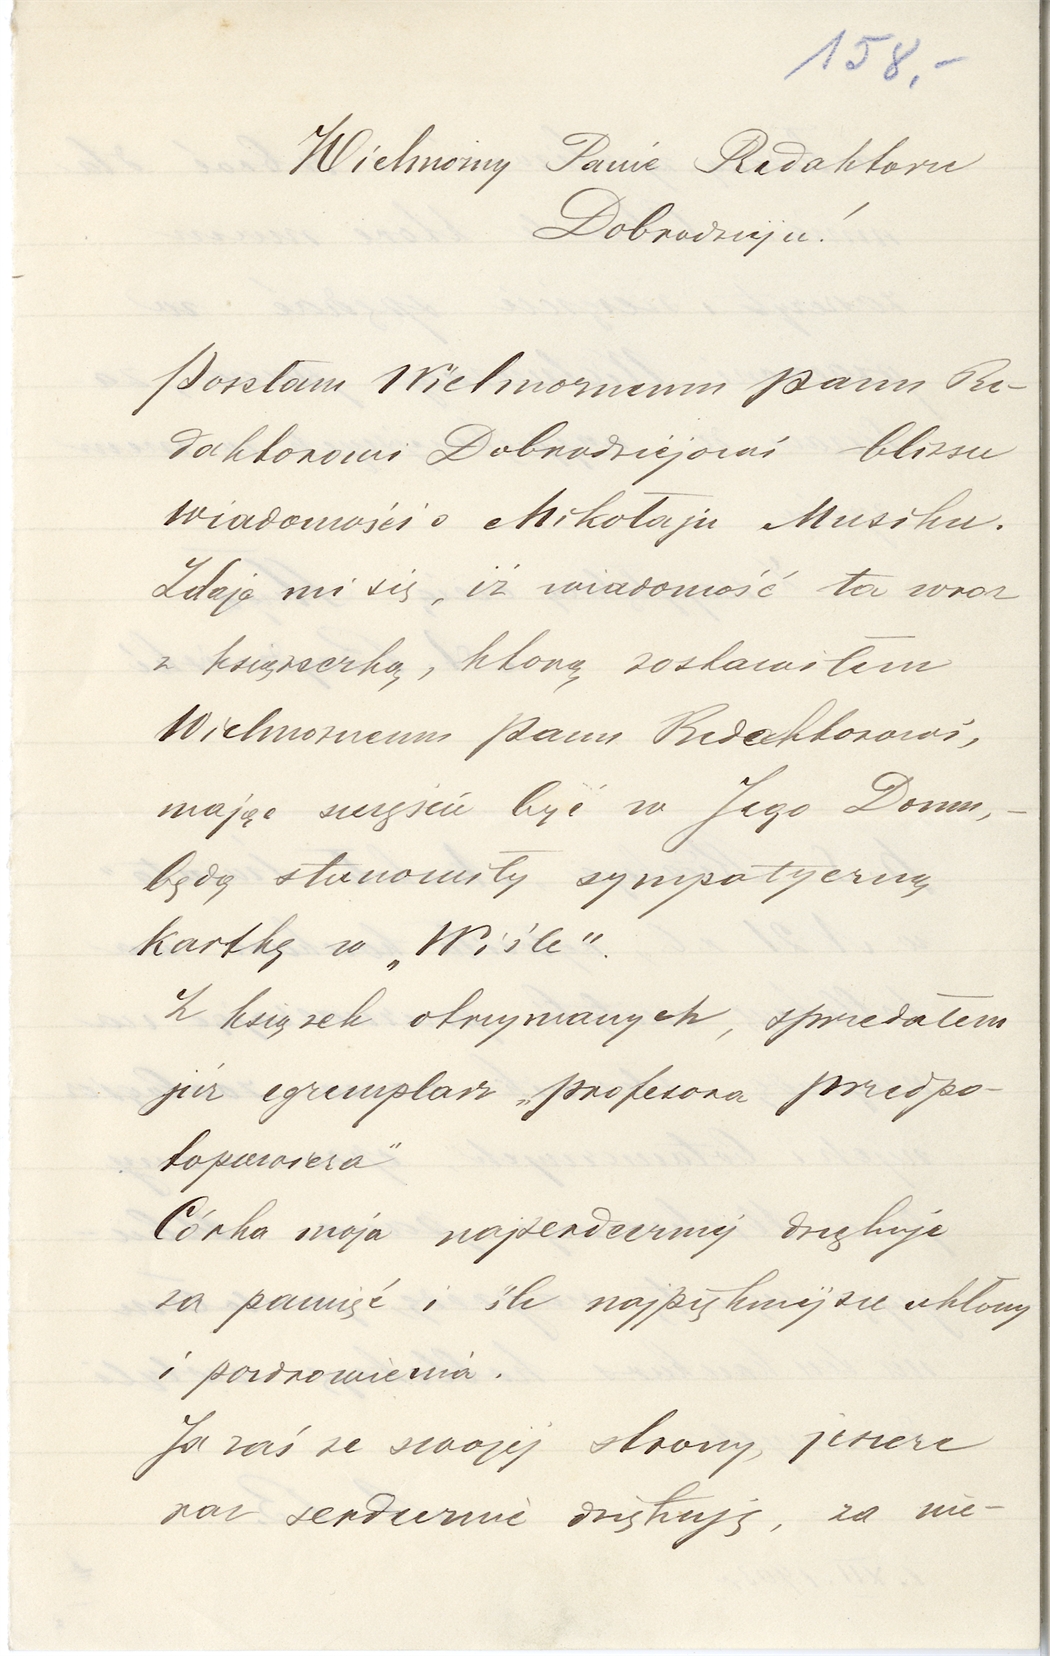 158,-
Wielmożny Panie Redaktorze
Dobrodzieju!
Posełam Wielmożnemu panu Re-
daktorowi Dobrodziejowi bliższe
wiadomości o Mikołaju Musiku.
Zdaje mi się, iż wiadomość ta wraz
z książeczką, którą zostawiłem
Wielmożnemu panu Redaktorowi,
mając szczęście być w Jego Domu, -
będą stanowiły sympatyczną
kartkę w „Wiśle".
Z książek otrzymanych, sprzedałem
już egzemplarz „profesora przedpo-
topowicza"
Córka moja najserdeczniej dziękuje
za pamięć i śle najpiękniejsze ukłony
i pozdrowienia.
Ja zaś ze swojej strony, jeszcze
raz serdecznie dziękuję, za nie-